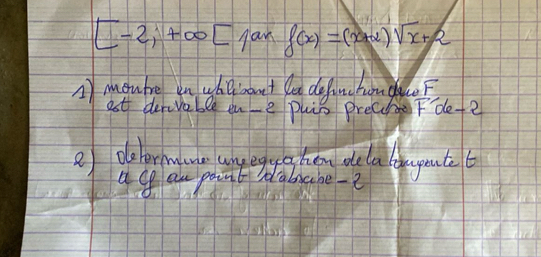 [-2; +∞[ par f(x) = (x+2)√x+2
1) montre en utilisant la definition que F
est derivable en -2 puis precise F' de -2
2) determine une equation de la tangente t
a Cf au point d'abscisse -2